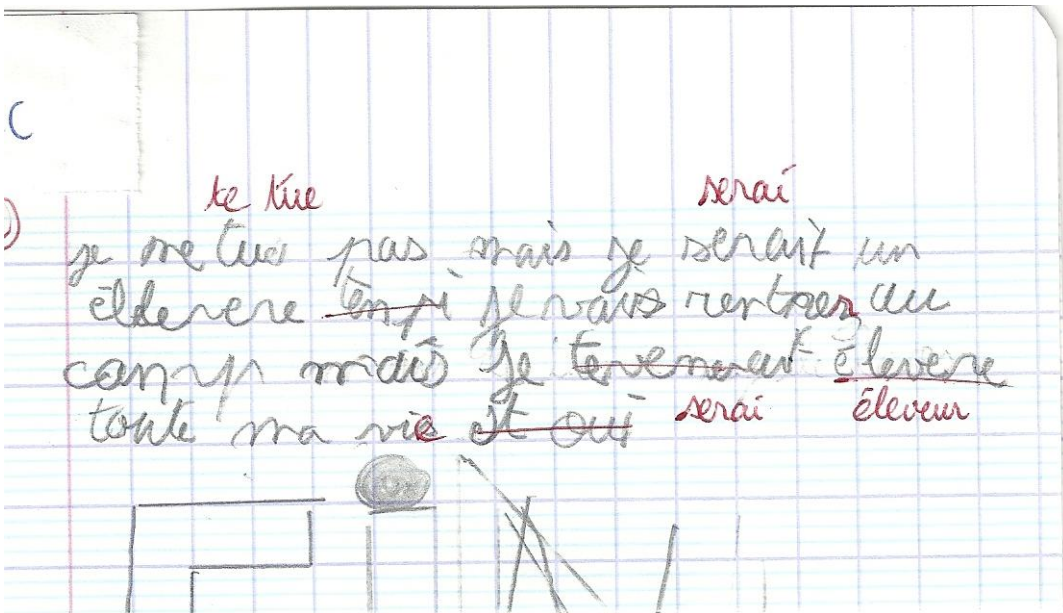 C
te tue serai
je me tue pas mais je serait un
élevere je vais rentrer au
camp mais je élevère
toute ma vie et oui serai éleveur
FIN